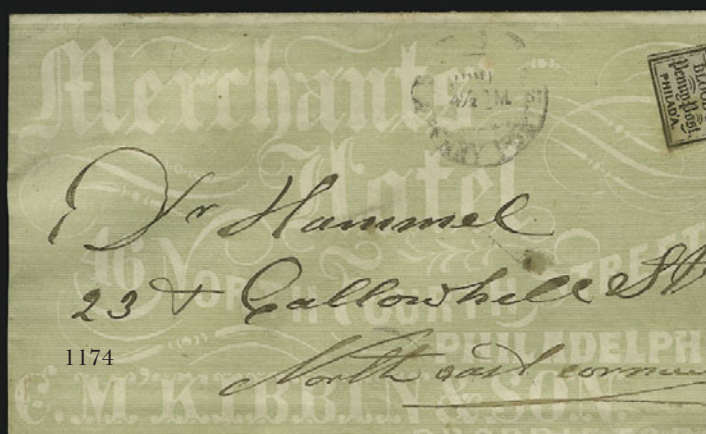 Merchants
Hotel
46 NORTH FOURTH STREET
PHILADELPH
C. M'KIBBIN & SON.
BLOOD
Penny Post.
PHILADA.
Dr Hammel
23 & Callowhill St
North east corner
1174